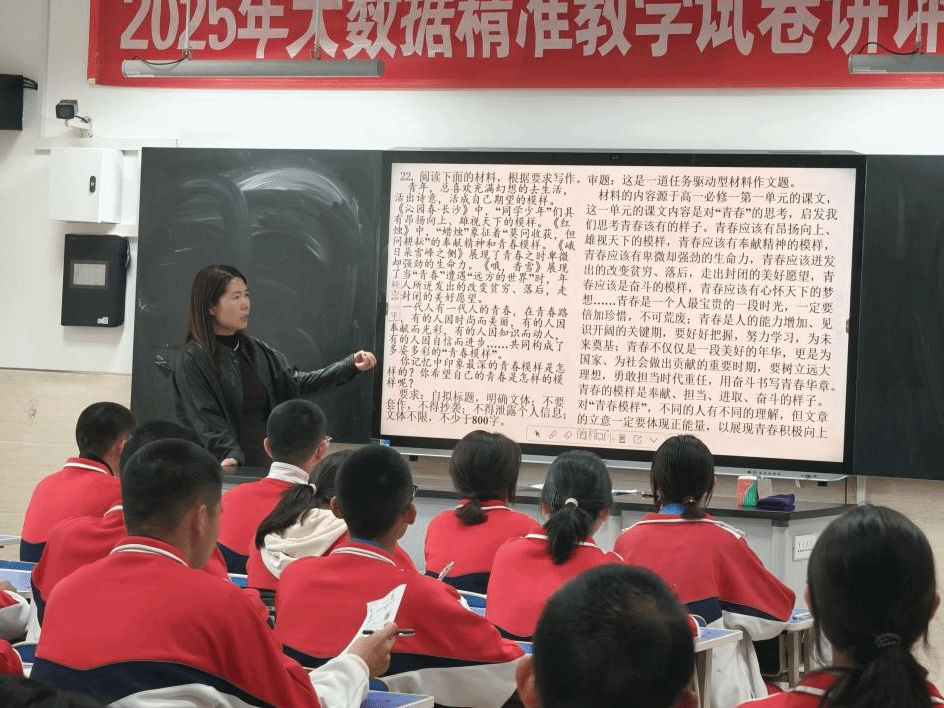 2025年大数据精准教学试卷讲评
22. 阅读下面的材料，根据要求写作。
青年，总喜欢充满幻想的去生活，
活出诗意，活成自己期望的模样。
《沁园春·长沙》中，“同学少年”们具
有昂扬向上、雄视天下的模样。《红
烛》中，“蜡烛”象征着“莫问收获，但
问耕耘”的奉献精神和青春模样。《峨
日朵雪峰之侧》展现了青春之时卑微
却强劲的生命力。《哦，香雪》展现
了当“青春”遭遇“远方的世界”时，年
轻人所迸发出的改变贫穷、落后，走
出封闭的美好愿望。
一代人有一代人的青春，在青春路
上，有的人因时尚而美丽，有的人因
奉献而光彩，有的人因知识而动人，
有的人因自信而进步……共同构成了
多姿多彩的“青春模样”。
你记忆中印象最深的青春模样是怎
样的？你希望自己的青春是怎样的模
样呢？
要求：自拟标题，明确文体；不要
套作，不得抄袭；不得泄露个人信息；
文体不限，不少于800字。
审题：这是一道任务驱动型材料作文题。
材料的内容源于高一必修一第一单元的课文，
这一单元的课文内容是对“青春”的思考，启发我
们思考青春该有的样子。青春应该有昂扬向上、
雄视天下的模样，青春应该有奉献精神的模样，
青春应该有卑微却强劲的生命力，青春应该迸发
出的改变贫穷、落后，走出封闭的美好愿望，青
春应该是奋斗的模样，青春应该有心怀天下的梦
想……青春是一个人最宝贵的一段时光，一定要
倍加珍惜，不可荒废；青春是人的能力增加、见
识开阔的关键期，要好好把握，努力学习，为未
来奠基；青春不仅仅是一段美好的年华，更是为
国家、为社会做出贡献的重要时期，要树立远大
理想，勇敢担当时代重任，用奋斗书写青春华章。
青春的模样是奉献、担当、进取、奋斗的样子。
对“青春模样”，不同的人有不同的理解，但文章
的立意一定要体现正能量，以展现青春积极向上